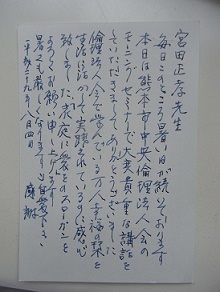 宮田正孝先生
毎日このところ暑い日が続いております
本日は熊本市中央倫理法人会の
モーニングセミナーで大変貴重な講話を
していただきましてありがとうございました
倫理法人会で学んでいる方々が幸福の栞を
生活に活かして実践されているのに感心
致しました 家庭に愛をのスローガンを
よろしくお願い申し上げます
暑さも厳しくなりますご自愛下さい
平成二十九年八月四日